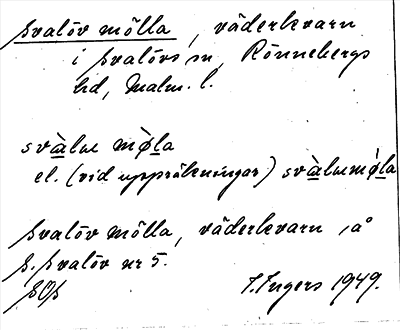 Svalöv mölla, väderkvarn
i Svalövs sn, Rönnebergs
hd, Malm. l.
svàlɯ mø̀la
el. (vid uppräkningar) svàlɯmǿla
Svalöv mölla, väderkvarn, å
S. Svalöv nr 5.
SOS
I. Ingers 1949.